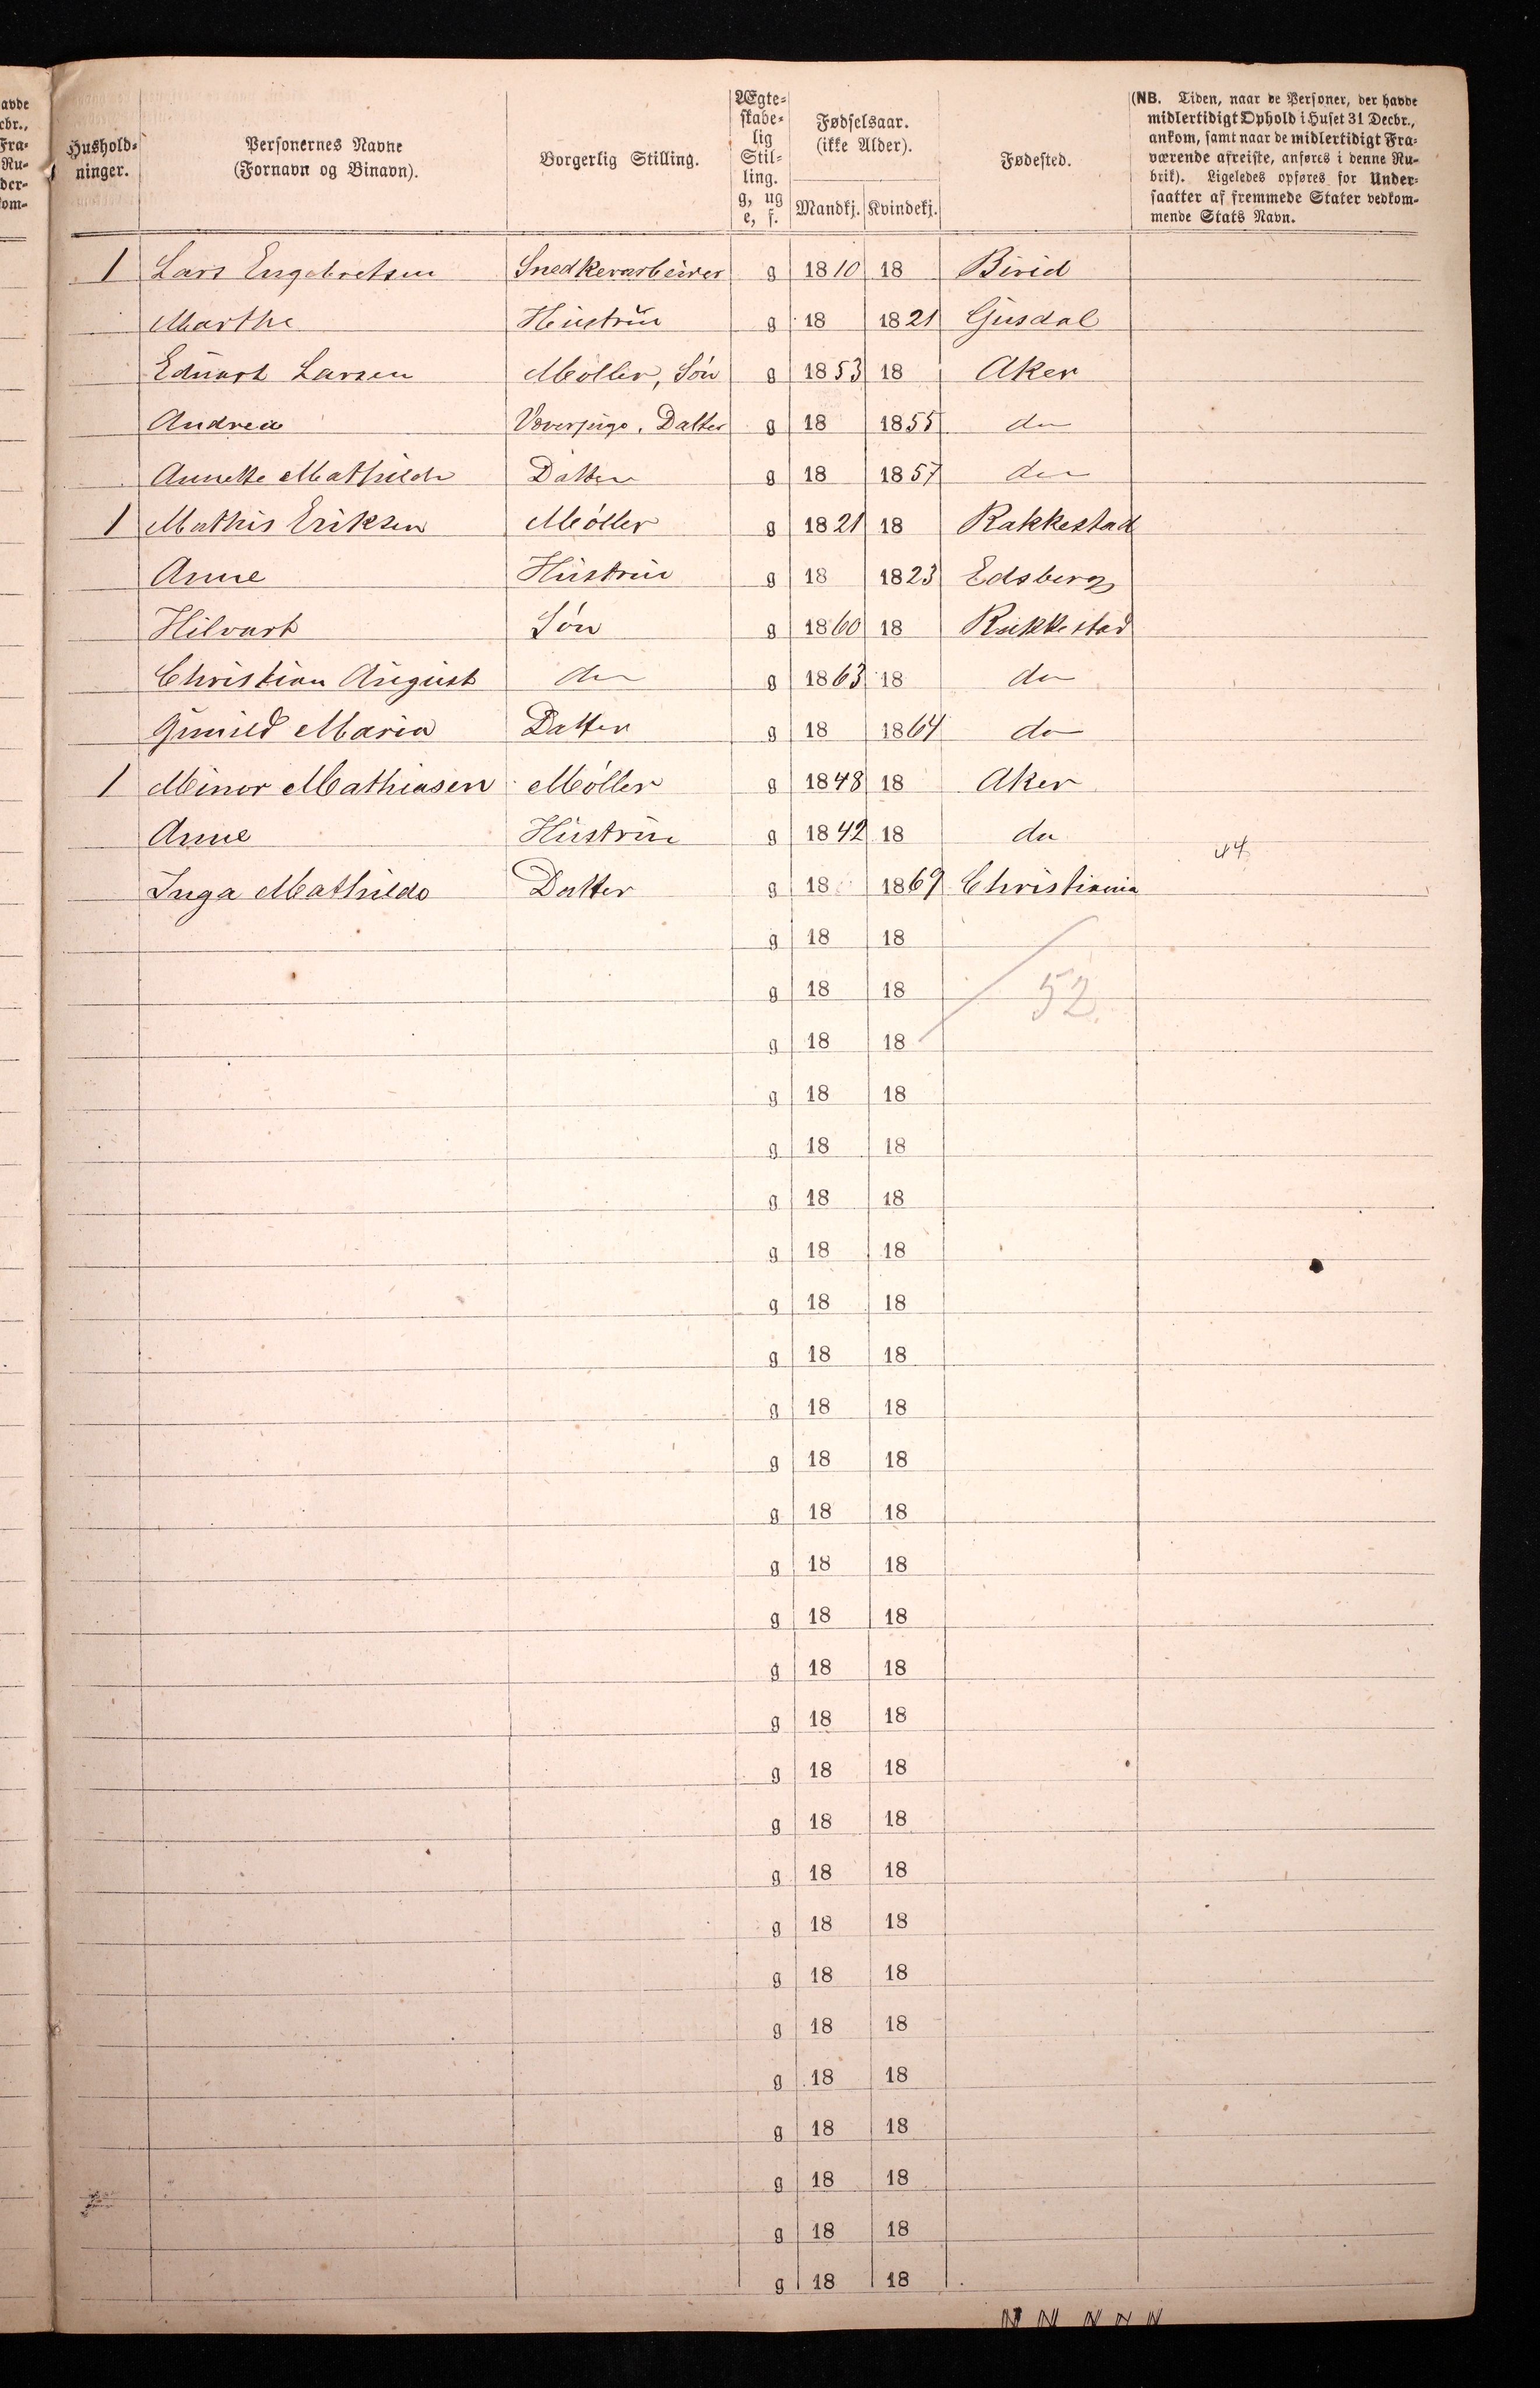 avde
cbr.,
Fra-
Ru-
der-
kom-
Hushold-
ninger.
Personernes Navne
(Fornavn og Binavn).
Borgerlig Stilling.
Ægte-
skabe-
lig
Stil-
ling.
g, ug
e, f.
Fødselsaar.
(ikke Alder).
Mandkj. Kvindekj.
Fødested.
(NB. Tiden, naar de Personer, der havde
midlertidigt Ophold i Huset 31 Decbr.,
ankom, samt naar de midlertidigt Fra-
værende afreiste, anføres i denne Ru-
brik). Ligeledes opføres for Under-
saatter af fremmede Stater vedkom-
mende Stats Navn.
1 Lars Engebretsen Snedkerarbeider g 1810 18 Birid
Marthe Hustru g 18 1821 Gusdal
Eduart Larsen Møller, Søn g 1853 18 Aker
Andrea Væverpige, Datter g 18 1855 do
Annette Mathilde Datter g 18 1857 do
1 Mathis Eriksen Møller g 1821 18 Rakkestad
Anne Hustru g 18 1823 Edsberg
Hilvart Søn g 1860 18 Rakkestad
Christian August do g 1863 18 do
Gunild Maria Datter g 18 1864 do
1 Minor Mathiasen Møller g 1848 18 Aker
Anne Hustru g 1842 18 do
44
Inga Mathilde Datter g 18 1869 Christiania
g 18 18
g 18 18 52
g 18 18
g 18 18
g 18 18
g 18 18
g 18 18
g 18 18
g 18 18
g 18 18
g 18 18
g 18 18
g 18 18
g 18 18
g 18 18
g 18 18
g 18 18
g 18 18
g 18 18
g 18 18
g 18 18
g 18 18
g 18 18
g 18 18
g 18 18
g 18 18
g 18 18